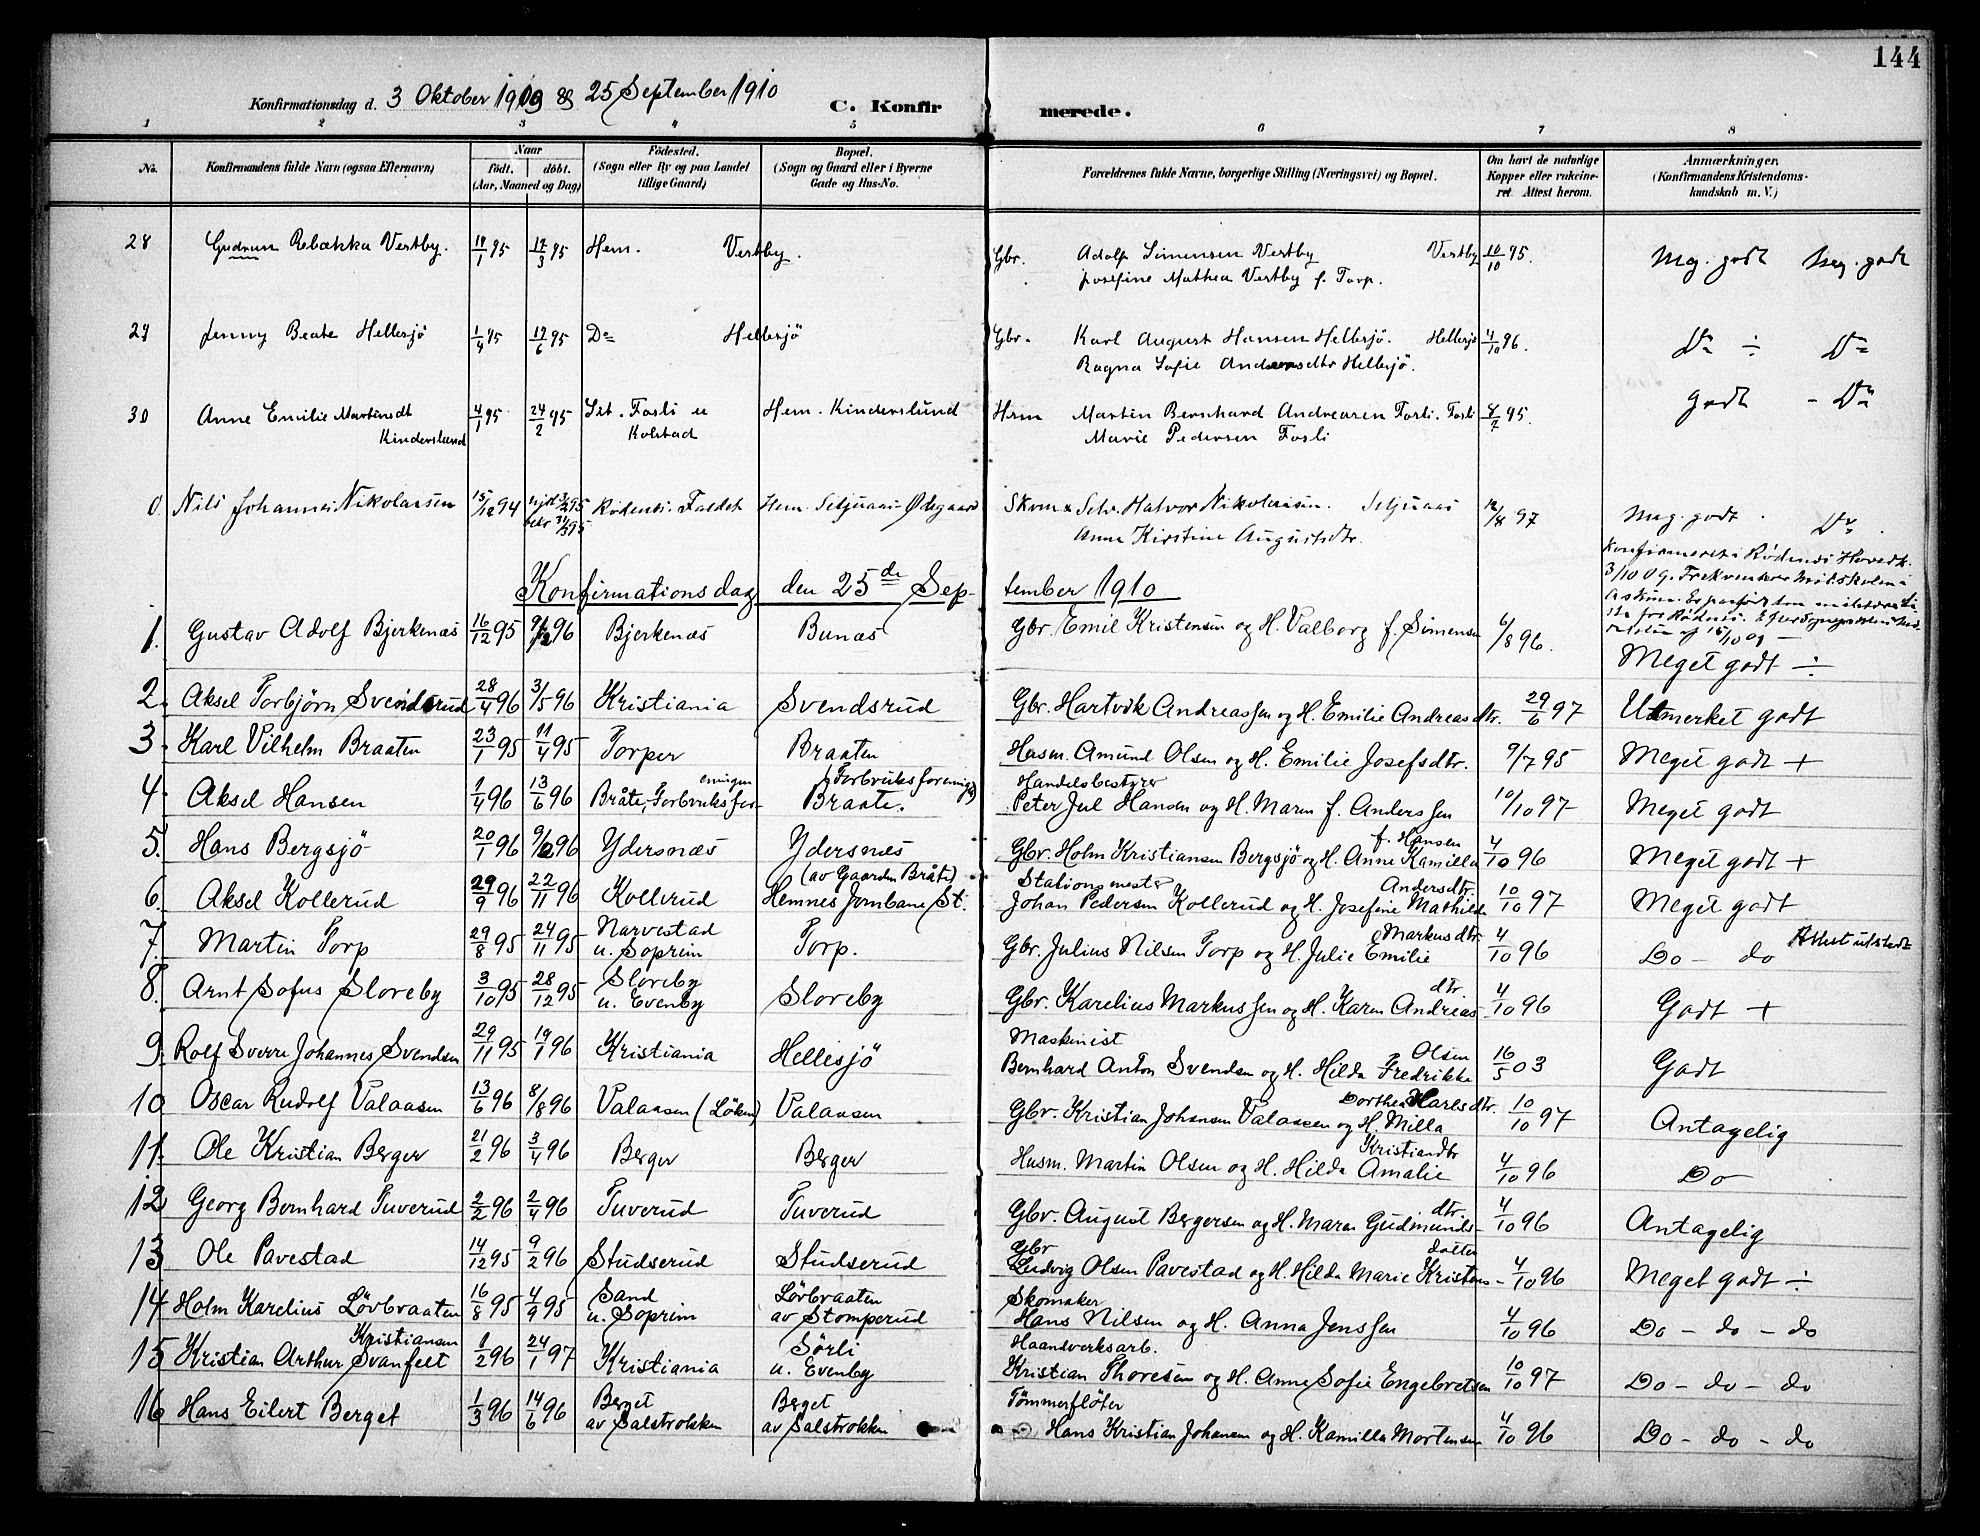 144
Konfirmationsdag d. 3 Oktober 1909 & 25 September 1910 C. Konfirmerede.
1 2 3 4 5 6 7 8
No. Konfirmandens fulde Navn (ogsaa Efternavn) Naar født. døbt. (Aar, Maaned og Dag) Fødested. (Sogn eller By og paa Landet tillige Gaard) Bopæl. (Sogn og Gaard eller i Byerne Gade og Hus-No. Forældrenes fulde Navne, borgerlige Stilling (Næringsvei) og Bopæl. Om havt de naturlige Kopper eller vakcineret Attest herom. Anmærkninger. (Konfirmandens Kristendomskundskab m. V.)
28 Gudrun Rebekka Vestby. 95 17/3 95 Hem. Vestby. Gbr. Adolf Simensen Vestby Vestby 10/10 95. Meg. godt Meg. godt
Josefine Mathea Vestby f. Torp.
29 Jenny Beate Hellesjö 1/4 95 17/6 95 Do Hellesjö Gbr. Karl August Hansen Hellesjö. Hellesjö 4/10 96. Do ÷ Do
Ragna Sofie Andersdtr Hellesjö.
30 Anne Emilie Martinsdt 4/1 95 24/2 95 Set. Fosli u Hem. Kinderslund Hsm Martin Bernhard Andreasen Fosli. Fosli 8/7 95. godt - Do
Kinderslund Kolstad Marie Pedersen Fosli
0 Nils Johannes Nikolaisen 15/12 94 Rødenes. Faldet Hem. Seljuaas Ødegaard Skom & Selv. Halvor Nikolaisen. Seljuaas 12/8 97 Meg. godt. Do.
Anne Kirstine Augustsdtr.
Konfirmeret i Rødenes Hovedk.
3/10 09.
Konfirmationsdag den 25de September 1910
1. Gustav Adolf Bjerkenæs 16/12 95 9/2 96 Bjerkenæs Bunæs Gbr. Emil Kristensen og H. Valborg f. Simensen 6/8 96. Meget godt ÷
2. Aksel Torbjörn Svendsrud 28/4 96 3/5 96 Kristiania Svendsrud Gbr. Hartvik Andreassen og H. Emilie Andreasdtr. 29/6 97 Utmerket godt
3. Karl Vilhelm Braaten 23/1 95 11/4 95 Torper Braaten Husm. Amund Olsen og H. Emilie Josefsdtr. 9/7 95 Meget godt +
eningen (Forbruksforening) Handelsbestyrer
4. Aksel Hansen 1/4 96 13/6 96 Bråte, Forbruksfor- Braate. Peter Jul Hansen og H. Maren f. Anderssen 10/10 97 Meget godt
f. Hansen
5. Hans Bergsjö 20/1 96 96 Ydersnæs Ydersnæs Gbr. Holm Kristiansen Bergsjö og H. Anne Kamilla 4/10 96 Meget godt +
(av Gaarden Bråte) Stationsmester Andersdtr.
6. Aksel Kollerud 29/9 96 22/11 96 Kollerud Hemnes Jernbane St. Johan Pedersen Kollerud og H. Josefine Mathilde 10/10 97 Meget godt
Narvestad Markusdtr. Attest utstedt
7. Martin Torp 29/8 95 24/11 95 u. Soprim Torp. Gbr. Julius Nilsen Torp og H. Julie Emilie 4/10 96 Do - do
Sloreby dtr
8. Arnt Sofus Sloreby 3/10 95 28/12 95 u. Evenby Sloreby Gbr. Karelius Markussen og H. Karen Andreas- 4/10 96 Godt +
Maskinist Olsen
9. Rolf Sverre Johannes Svendsen 29/11 95 19/1 96 Kristiania Hellesjö Bernhard Anton Svendsen og H. Hilda Fredrikke 16/5 03 Godt
Dorthea Karlsdtr.
10 Oscar Rudolf Valaasen 13/6 96 8/8 96 Valaasen (Löken) Valaasen Gbr. Kristian Johansen Valaasen og H. Milla 10/10 97 Antagelig
Kristiandtr
11. Ole Kristian Berger 21/2 96 3/4 96 Berger Berger Husm. Martin Olsen og H. Hilda Amalie 4/10 96 Do
dtr.
12 Georg Bernhard Tuverud 2/2 96 2/4 96 Tuverud Tuverud Gbr. August Bergersen og H. Maren Gudmunds- 4/10 96 Antagelig
Gbr datter
13 Ole Pavestad 14/12 95 9/2 96 Studserud Studserud Ludvig Olsen Pavestad og H. Hilda Marie Kristens- 4/10 96 Meget godt ÷
Sand Lövbraaten Skomaker
14 Holm Karelius Lövbraaten 16/8 95 4/9 95 u. Soprim av Stomperud Hans Nilsen og H. Anna Jenssen 4/10 96 Do - do - do
Kristiansen Sörli Haandverksarb.
15 Kristian Arthur Svanfelt 1/2 96 24/1 97 Kristiania u. Evenby Kristian Thoresen og H. Anne Sofie Engebretsen 10/10 97 Do - do - do
Berget Berget Tömmerflöter
16 Hans Eilert Berget 1/3 96 14/6 96 av Salstrokken av Salstrokken Hans Kristian Johansen og H. Kamilla Mortensen 4/10 96 Do - do - do